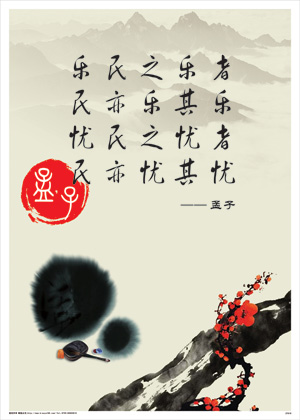 乐民之乐者
民亦乐其乐
忧民之忧者
民亦忧其忧
—— 孟子
孟子